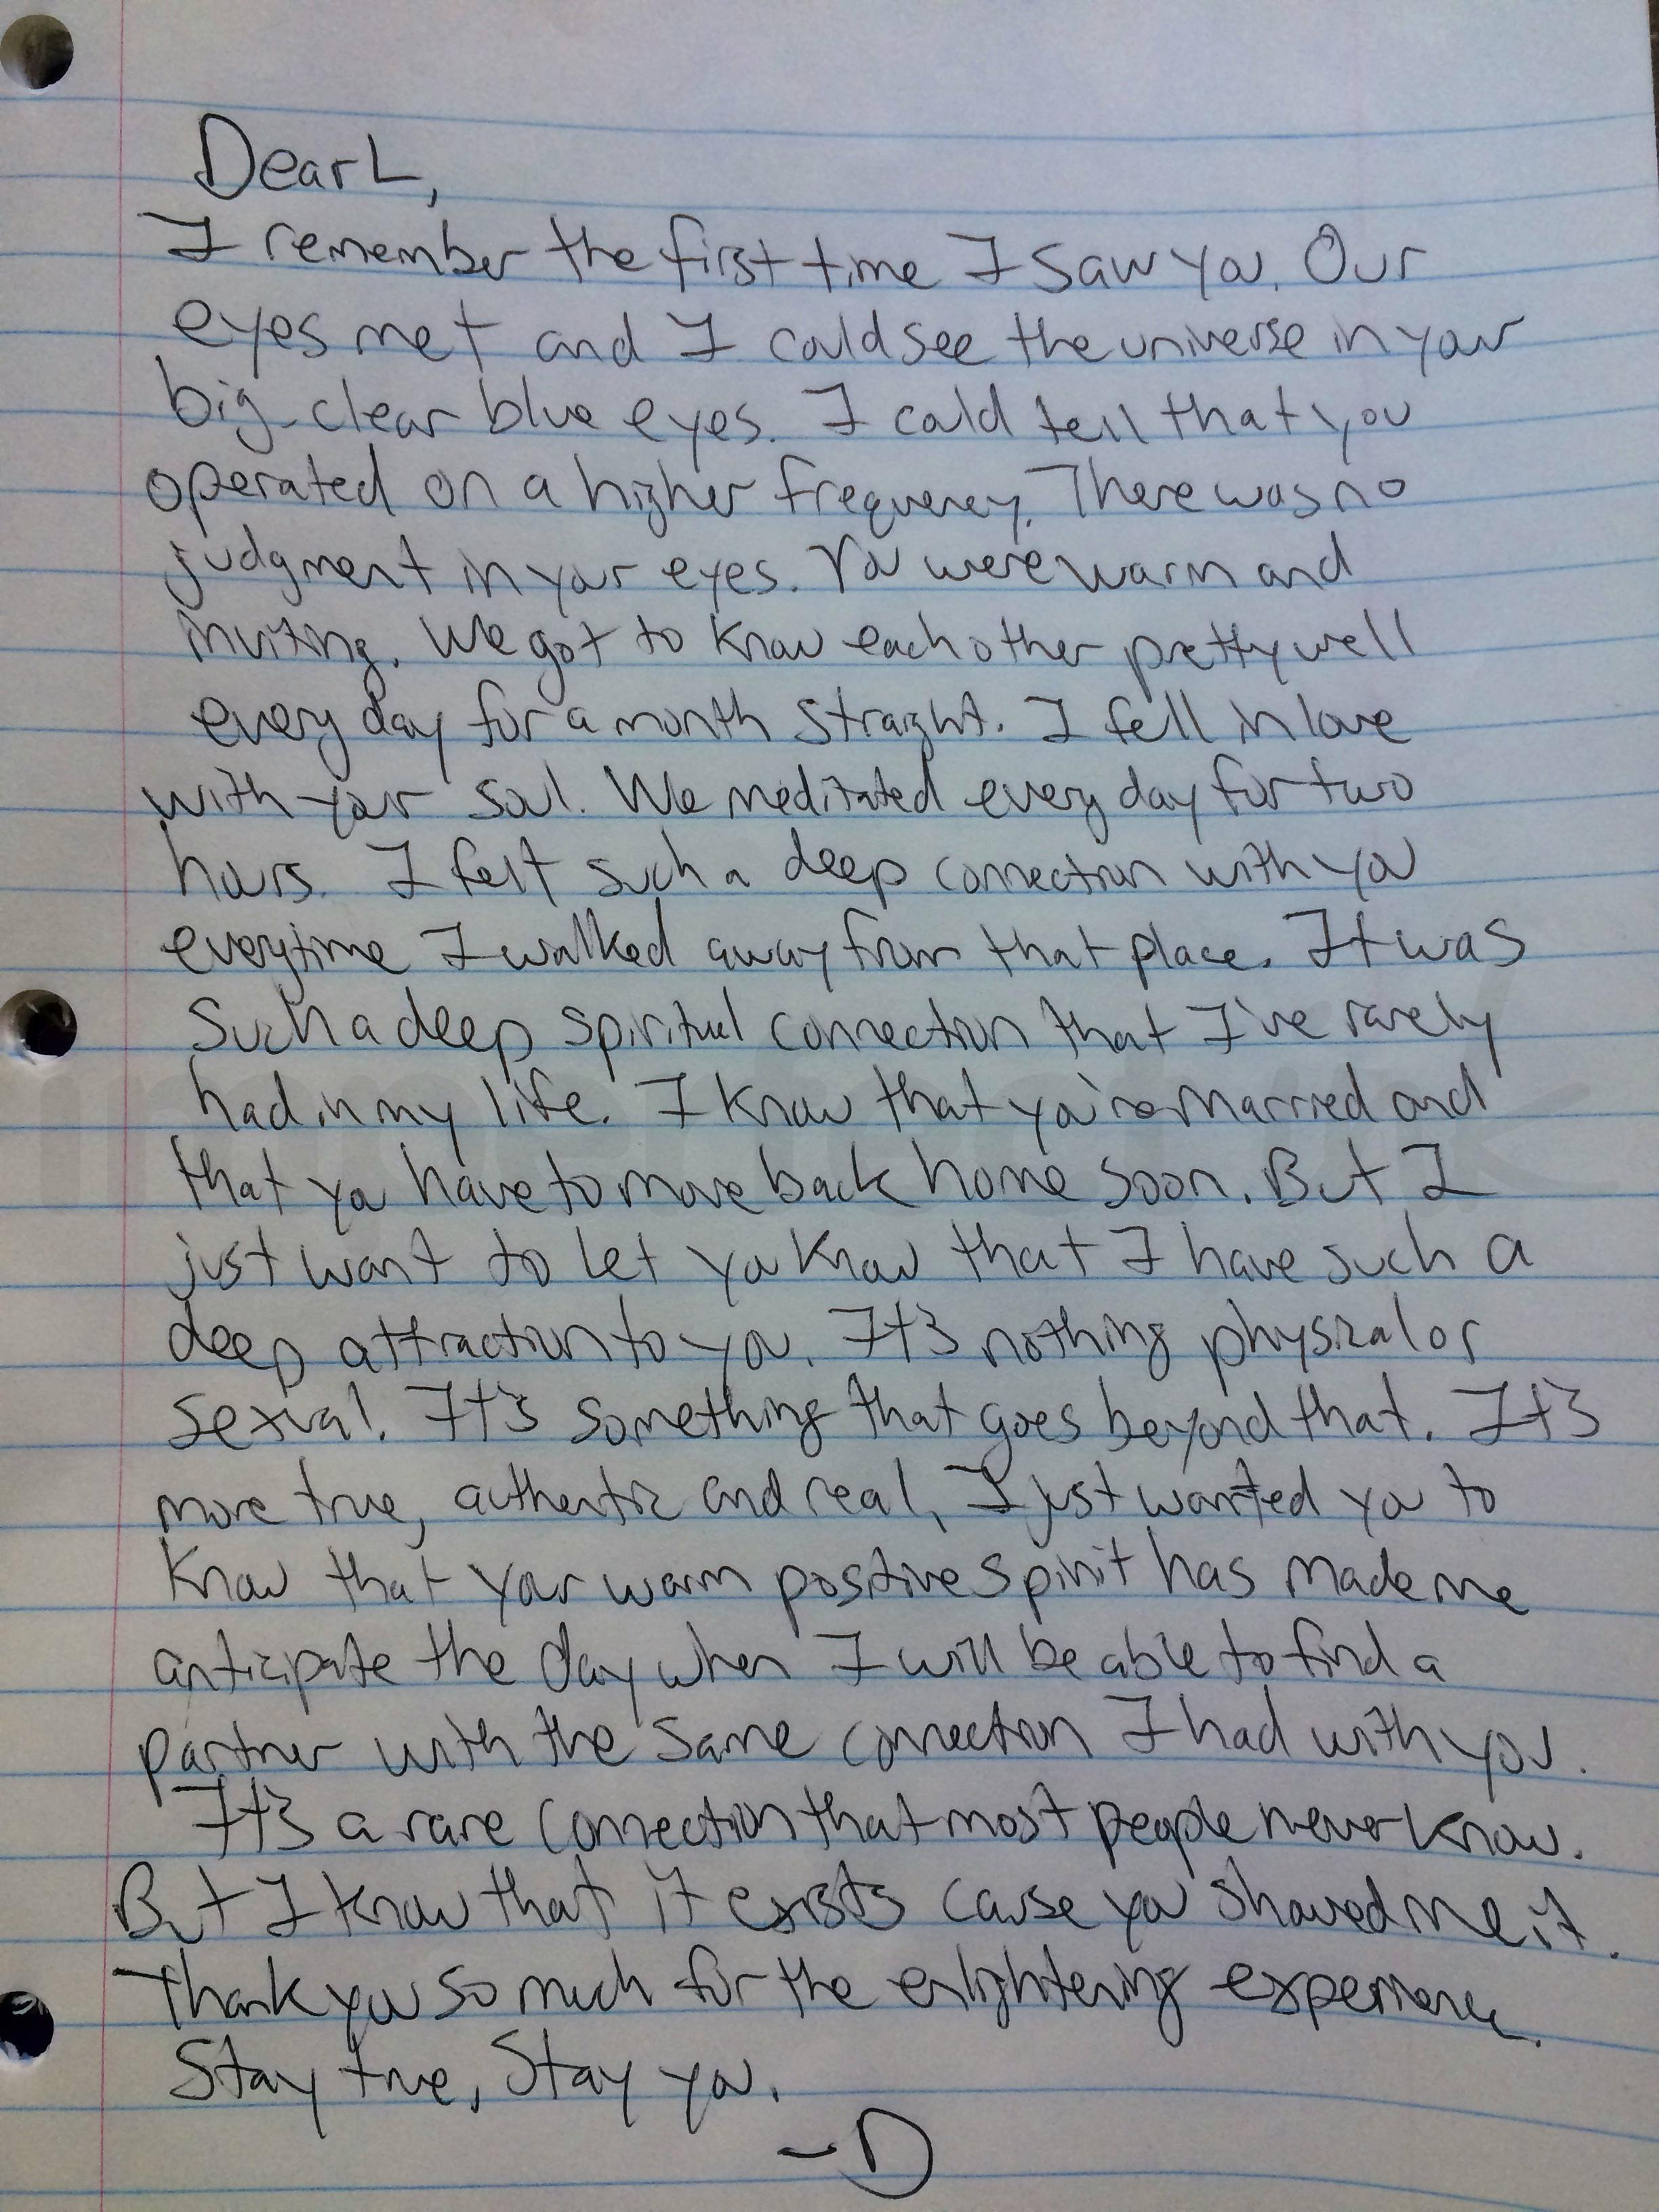 Dear L,
I remember the first time I saw you. Our
eyes met and I could see the universe in your
big clear blue eyes. I could tell that you
operated on a higher frequency. There was no
judgment in your eyes. You were warm and
inviting. We got to know each other pretty well
every day for a month straight. I fell in love
with your soul. We meditated every day for two
hours. I felt such a deep connection with you
everytime I walked away from that place. It was
such a deep spiritual connection that I've rarely
had in my life. I know that you're married and
that you have to move back home soon. But I
just want to let you know that I have such a
deep attraction to you. It's nothing physical or
sexual. It's something that goes beyond that. It's
more true, authentic and real. I just wanted you to
know that your warm positive spirit has made me
anticipate the day when I will be able to find a
partner with the same connection I had with you.
It's a rare connection that most people never know.
But I know that it exists cause you showed me it.
Thank you so much for the enlightening experience.
Stay true, Stay you.
-D